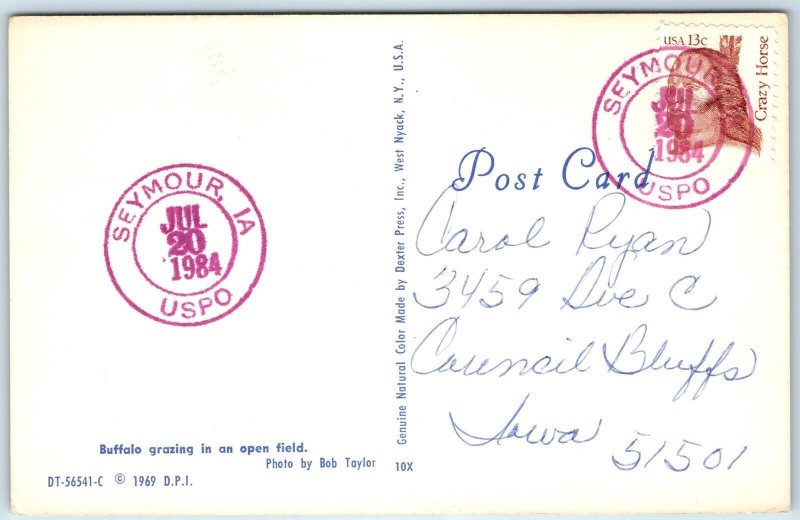 SEYMOUR, IA
JUL
20
1984
USPO
Buffalo grazing in an open field.
Photo by Bob Taylor
DT-56541-C © 1969 D.P.I.
10X
Genuine Natural Color Made by Dexter Press, Inc., West Nyack, N.Y., U.S.A.
USA 13c
Crazy Horse
SEYMOUR
JUL
20
1984
USPO
Post Card
Carol Ryan
3459 Ave C
Council Bluffs
Iowa
51501